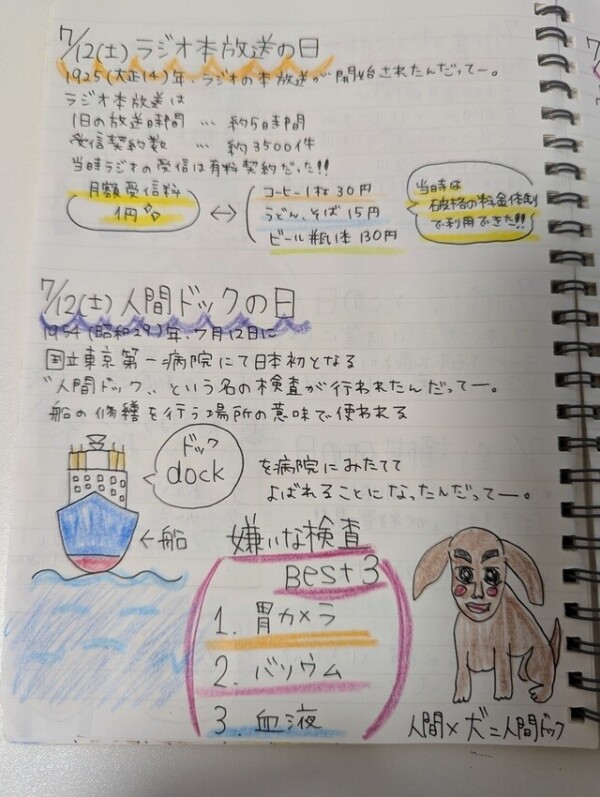 7/12(土) ラジオ本放送の日
1925(大正14)年、ラジオの本放送が開始されたんだってー。
ラジオ本放送は
1日の放送時間 … 約5時間
受信契約数 … 約3500件
当時ラジオの受信は有料契約だった!!
月額受信料
1円
↔
コーヒー1杯 30円
うどん、そば 15円
ビール瓶1本 130円
当時は
破格の料金体制
で利用できた!!
7/12(土) 人間ドックの日
1954(昭和29)年、7月12日に
国立東京第一病院にて日本初となる
"人間ドック"という名の検査が行われたんだってー。
船の修繕を行う場所の意味で使われる
ドック
dock
を病院にみたてて
よばれることになったんだってー。
←船
嫌いな検査
Best3
1. 胃カメラ
2. バリウム
3. 血液
人間×犬=人間ドック